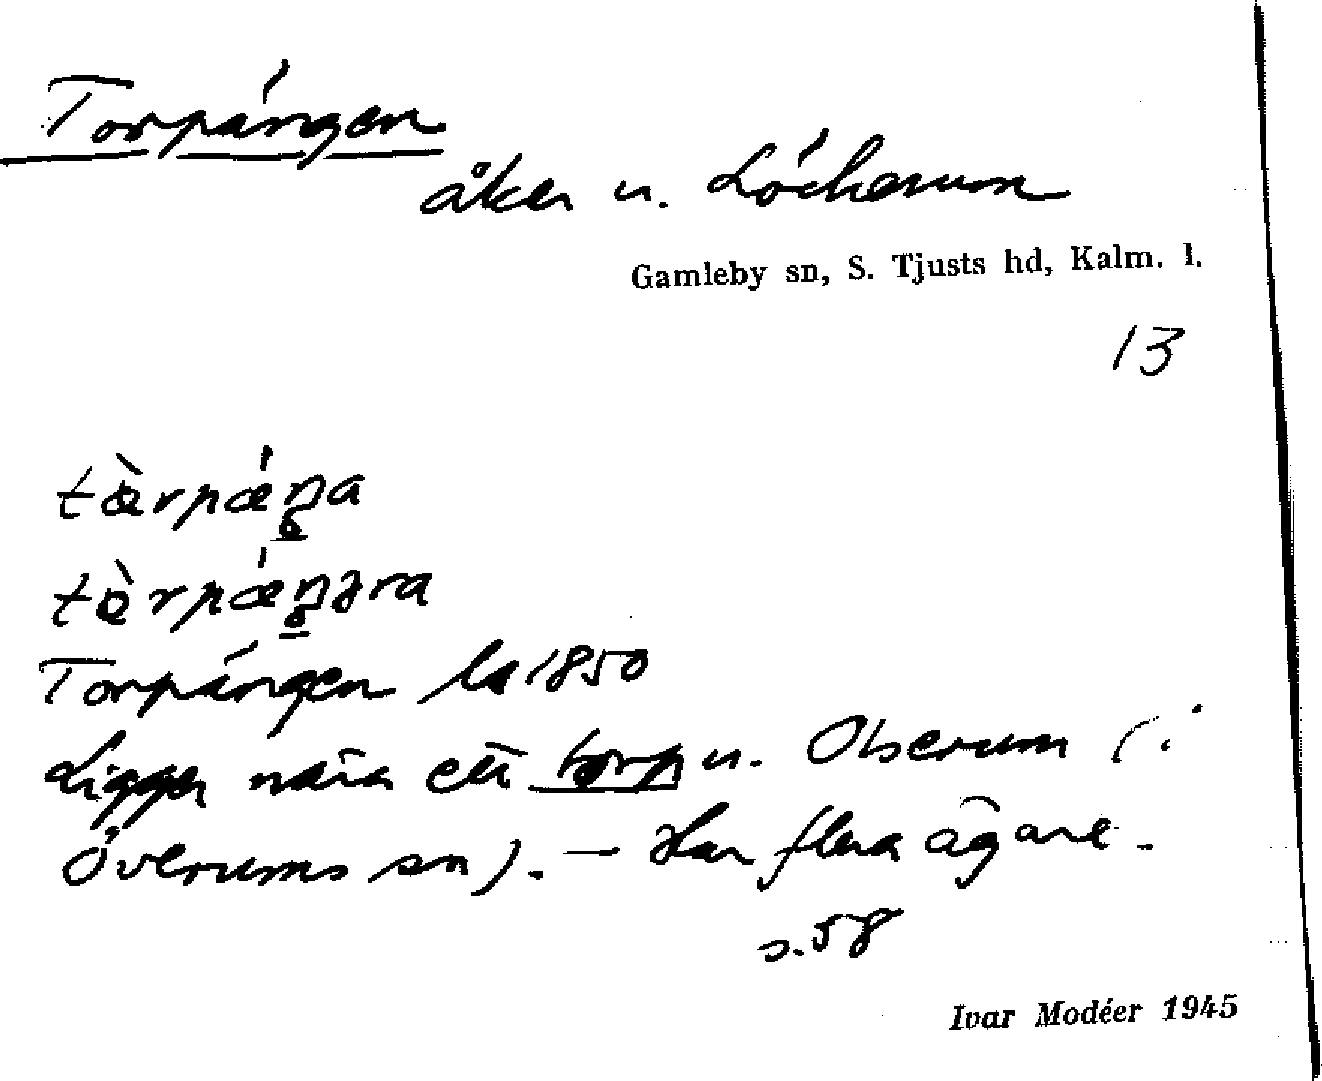 Torpängen
åker u. Löcherum
Gamleby sn, S. Tjusts hd, Kalm. l.
13
Torpängen la 1850
Ligger nära ett torp u. Olserum (i
Överums sn). — Har flera ägare.
s. 58
Ivar Modéer 1945